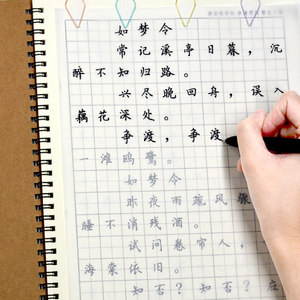 如梦令
常记溪亭日暮，沉
醉不知归路。
兴尽晚回舟，误入
藕花深处。
争渡，争渡
一滩鸥鹭。
如梦令
昨夜雨疏风骤
睡不消残酒。
试问卷帘人，
海棠依旧。
知否？知否？应